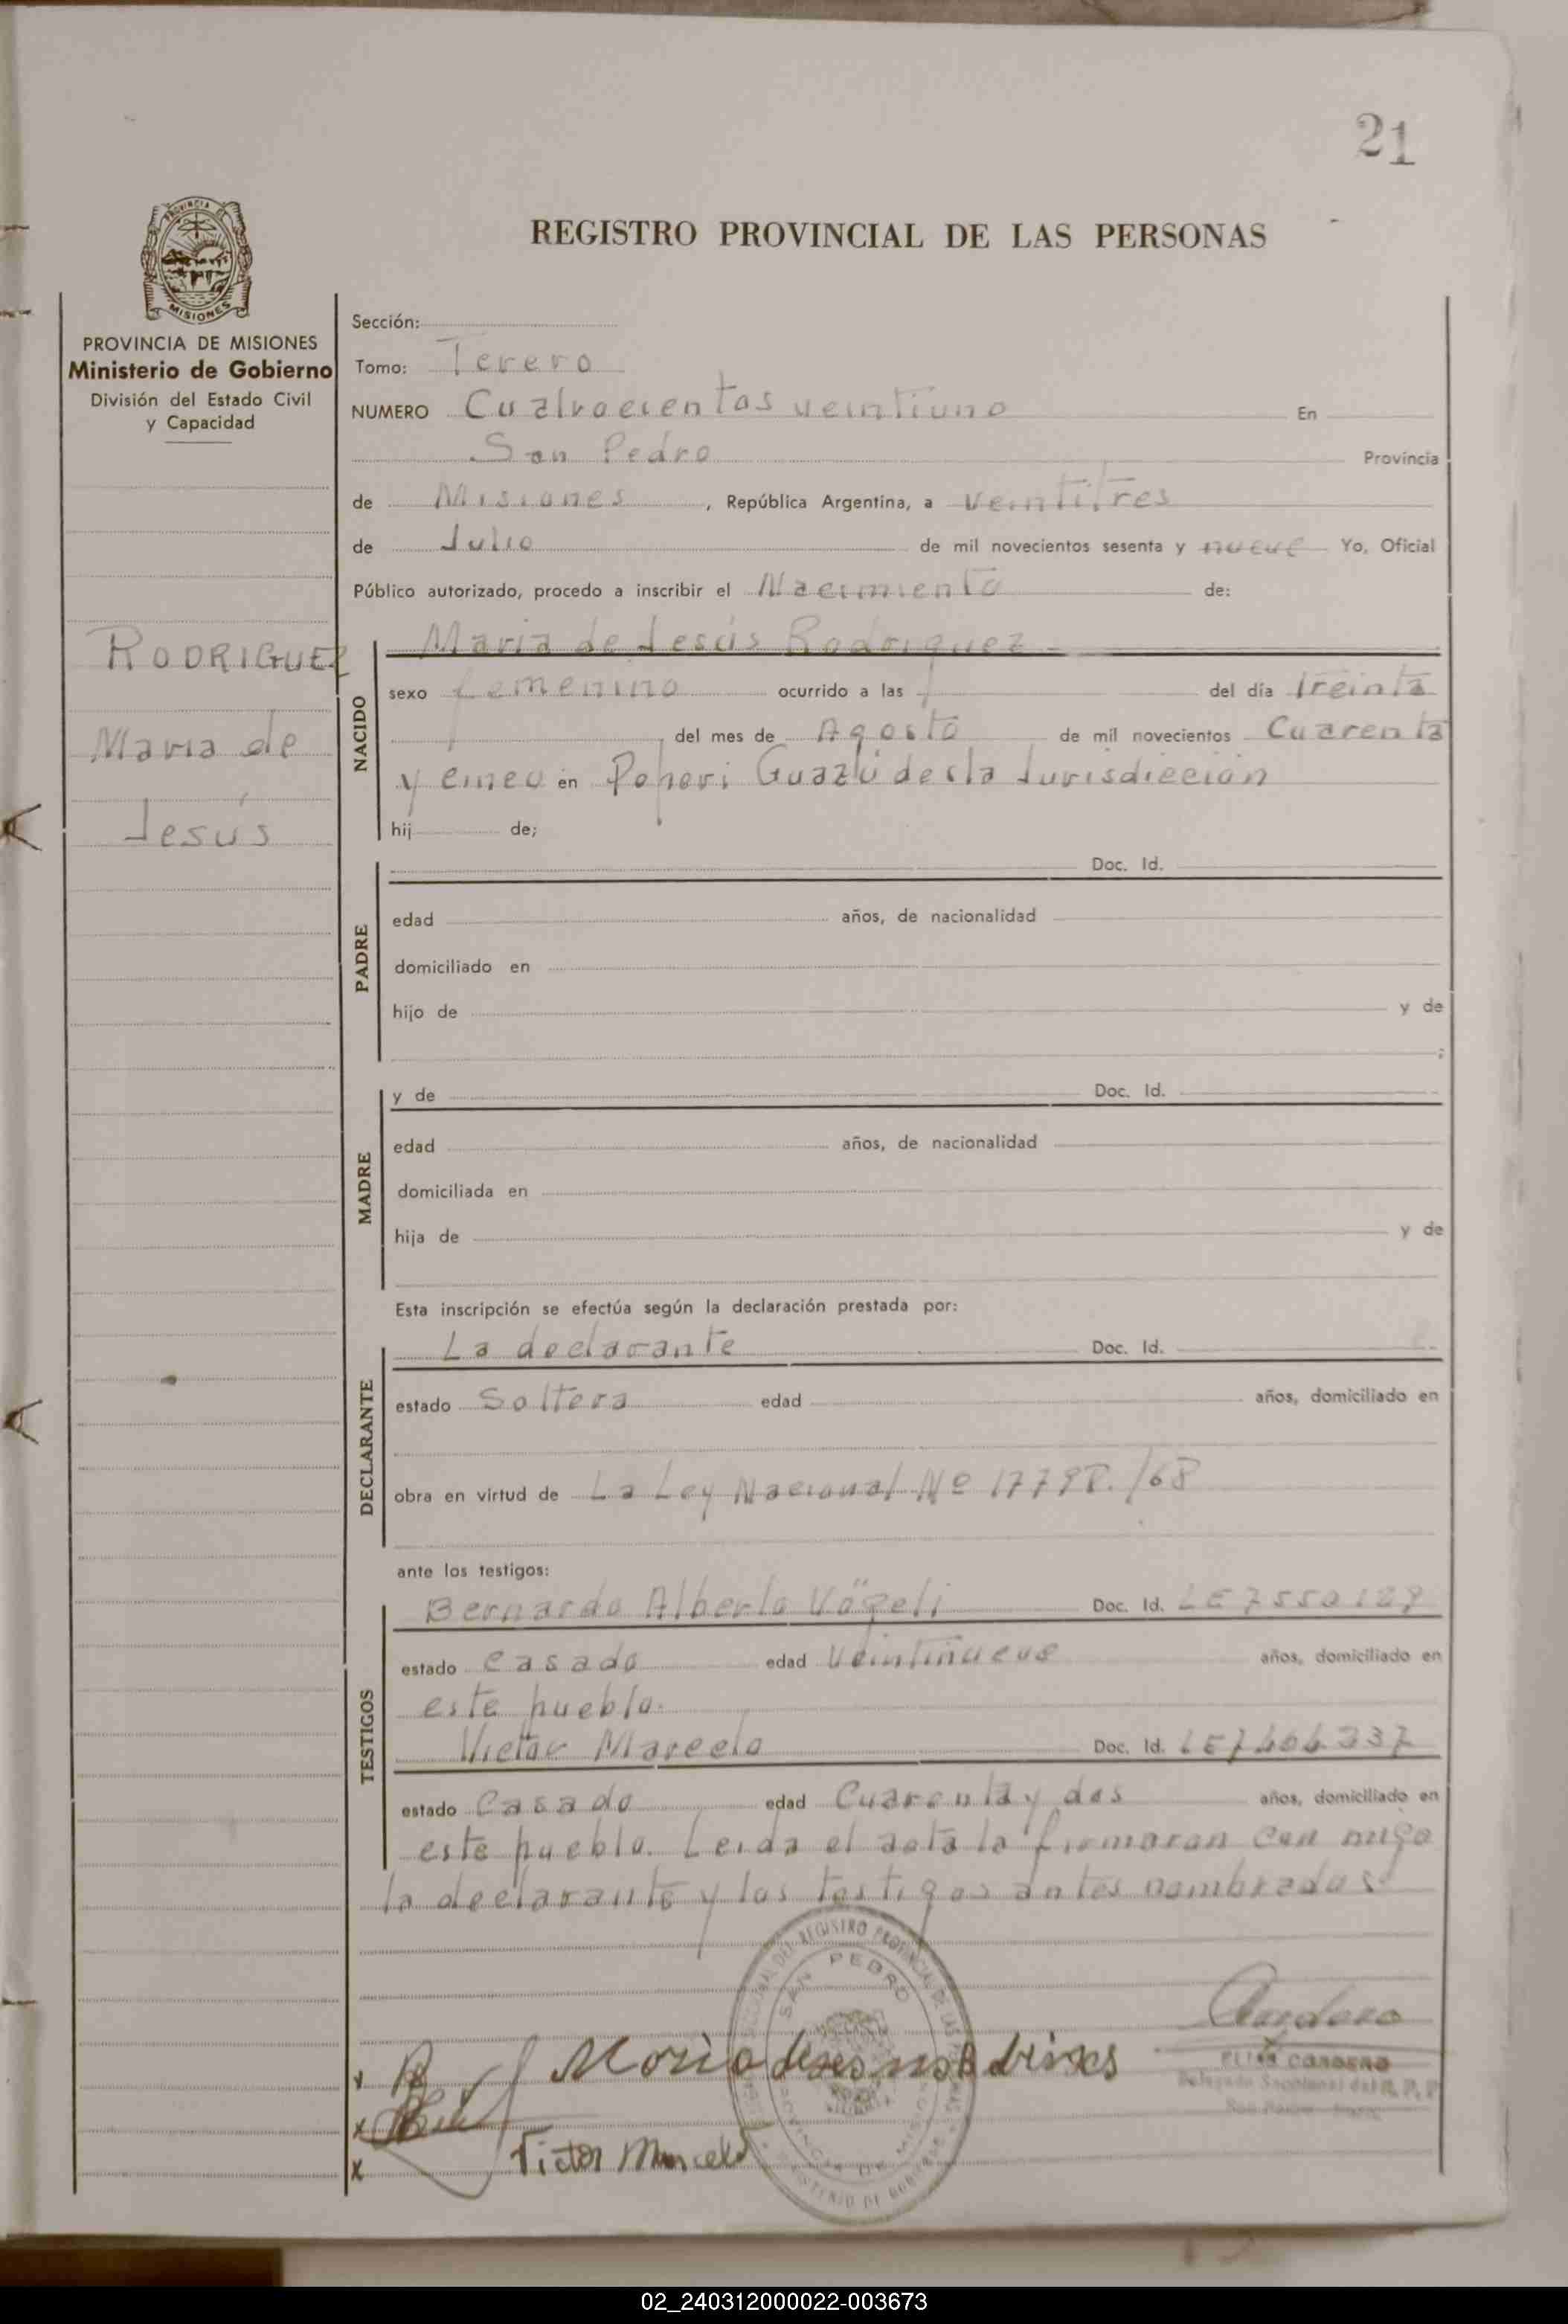 21
REGISTRO PROVINCIAL DE LAS PERSONAS
PROVINCIA DE
MISIONES
PROVINCIA DE MISIONES
Ministerio de Gobierno
División del Estado Civil
y Capacidad
RODRIGUEZ
Maria de
Jesús
Sección:
Tomo: Terero
NUMERO Cuatrocientos veintiuno En
San Pedro Provincia
de Misiones, República Argentina, a veintitres
de Julio de mil novecientos sesenta y nueve Yo, Oficial
Público autorizado, procedo a inscribir el Nacimiento de:
NACIDO
Maria de Jesús Rodriguez
sexo femenino ocurrido a las del día treinta
del mes de Agosto de mil novecientos Cuarenta
y cinco en Guazú desta Jurisdicción
hij de;
PADRE
Doc. Id.
edad años, de nacionalidad
domiciliado en
hijo de y de
;
MADRE
y de Doc. Id.
edad años, de nacionalidad
domiciliada en
hija de y de
Esta inscripción se efectúa según la declaración prestada por:
DECLARANTE
La declarante Doc. Id.
estado Soltera edad años, domiciliado en
obra en virtud de La Ley Nacional Nº 17798./68
ante los testigos:
TESTIGOS
Bernardo Alberto Vögeli Doc. Id. LE7550189
estado casado edad veintinueve años, domiciliado en
este pueblo.
Victor Marcelo Doc. Id.
estado Casado edad Cuarenta y dos años, domiciliado en
este pueblo. Leida el acta la firmaran con migo
la declarante y los testigos antes nombrados
SAN PEDRO
PROVINCIA DE MISIONES
CORDERO
Victor Marcelo
x
x
02_240312000022-003673